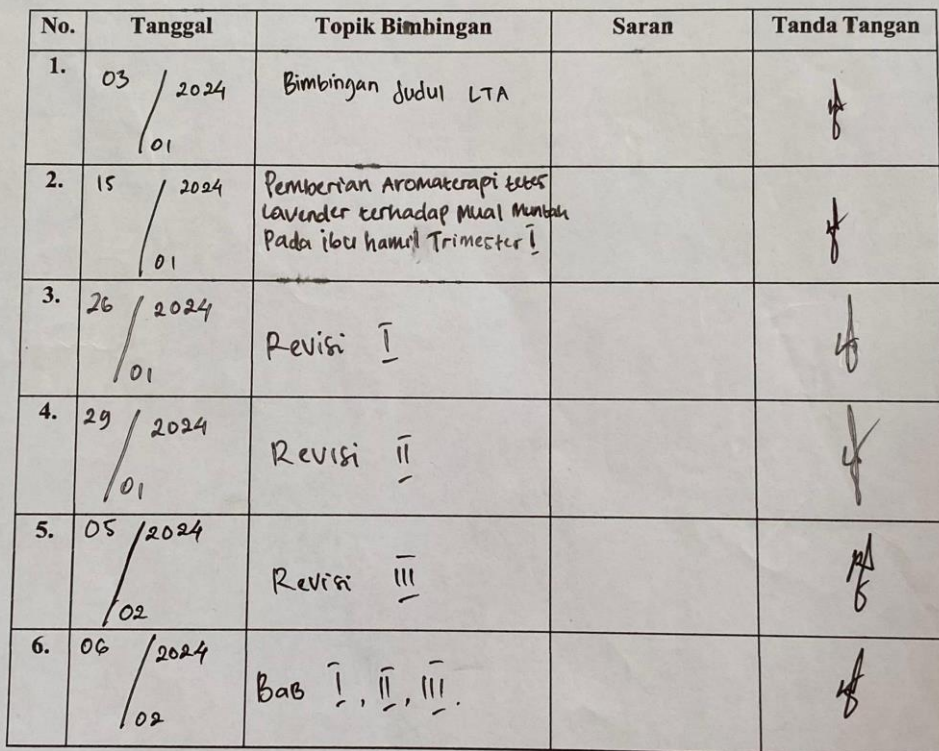 No. Tanggal Topik Bimbingan Saran Tanda Tangan
1. 03/01 2024 Bimbingan Judul LTA
2. 15/01 2024 Pemberian Aromaterapi tetes
Lavender terhadap Mual Muntah
Pada ibu hamil Trimester I
3. 26/01 2024 Revisi I
4. 29/01 2024 Revisi II
5. 05/02 2024 Revisi III
6. 06/02 2024 BaB I, II, III.